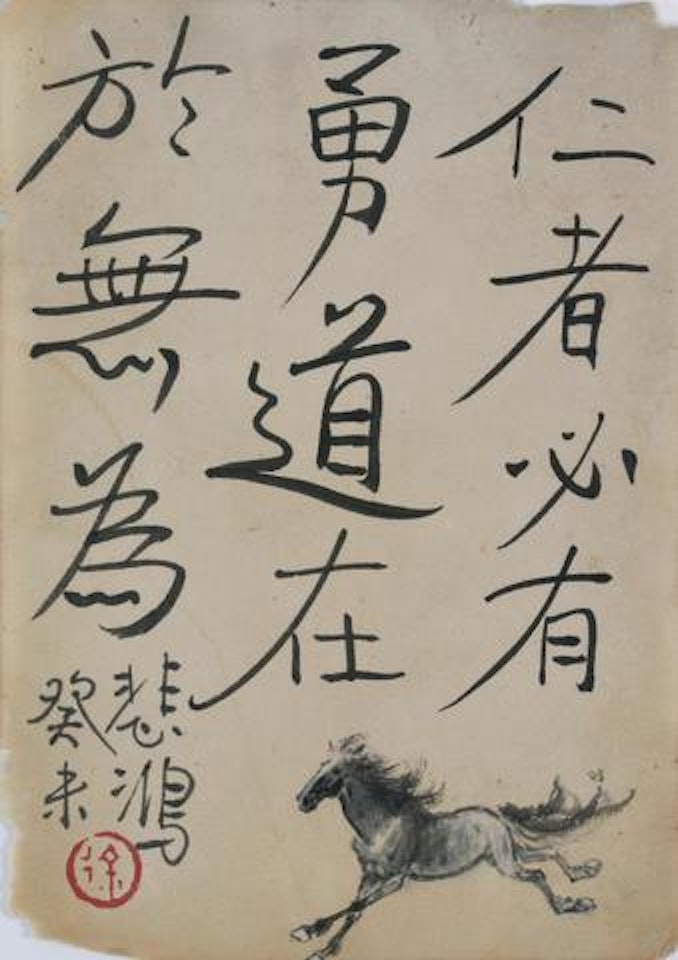 仁者必有
勇道在
於無為
悲鴻
癸未
徐